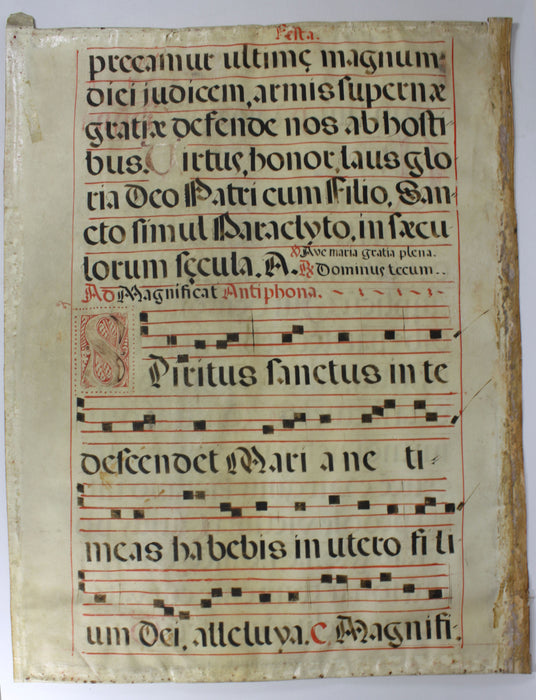 Festa.
precamur ultimę magnum
diei judicem, armis supernæ
gratiæ defende nos ab hosti
bus. Virtus, honor, laus glo
ria Deo Patri cum Filio, San
cto simul Paraclyto, in sæcu
lorum sęcula. A. ℣ Ave maria gratia plena.
℟ Dominus tecum..
Ad Magnificat Antiphona.
SPiritus sanctus in te
descendet Mari a ne ti-
meas habebis in utero fi li
um Dei, alleluya. C Magnifi.